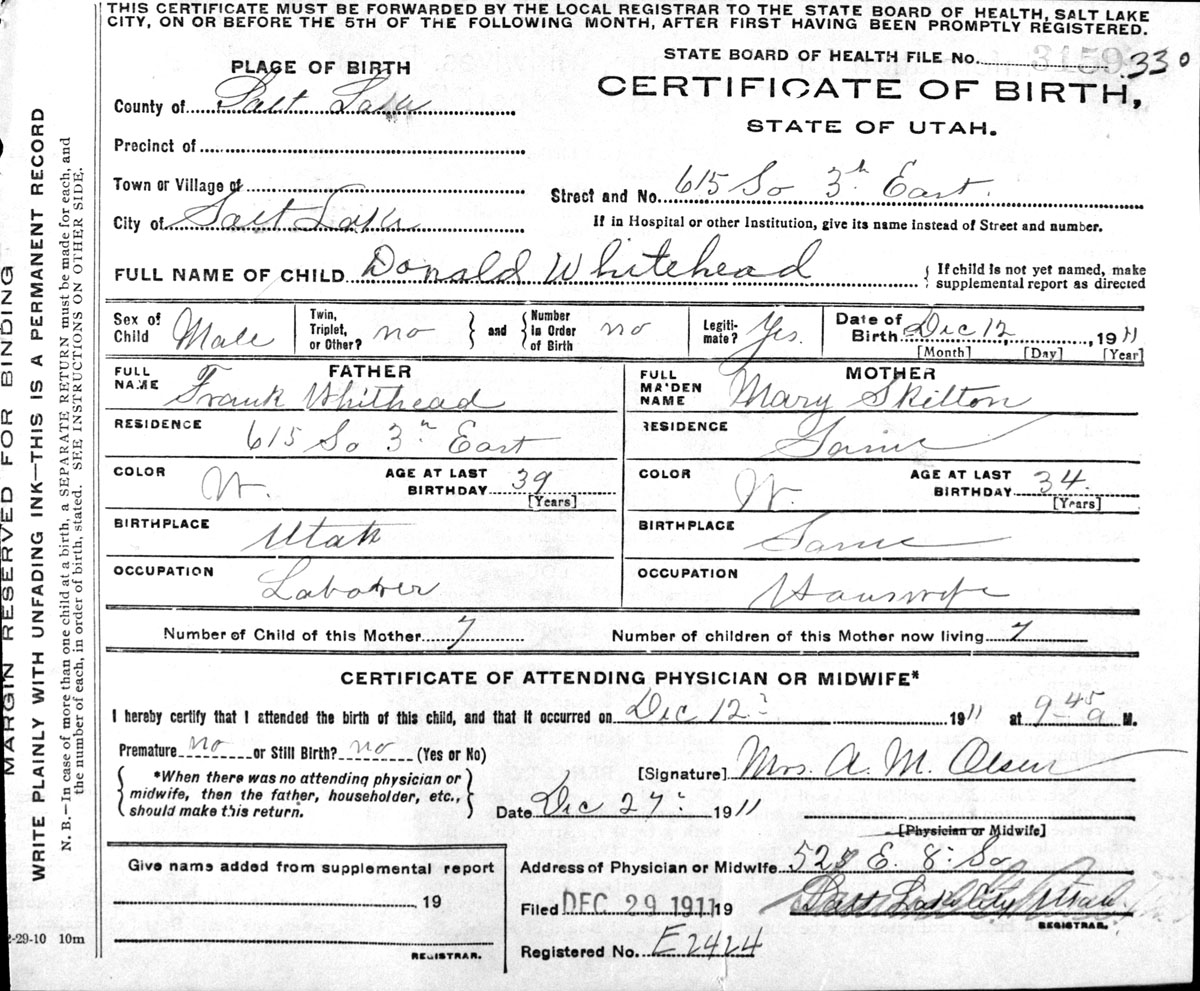 THIS CERTIFICATE MUST BE FORWARDED BY THE LOCAL REGISTRAR TO THE STATE BOARD OF HEALTH, SALT LAKE
CITY, ON OR BEFORE THE 5TH OF THE FOLLOWING MONTH, AFTER FIRST HAVING BEEN PROMPTLY REGISTERED.
MARGIN RESERVED FOR BINDING
WRITE PLAINLY WITH UNFADING INK—THIS IS A PERMANENT RECORD
N. B.—In case of more than one child at a birth, a SEPARATE RETURN must be made for each, and
the number of each, in order of birth, stated. SEE INSTRUCTIONS ON OTHER SIDE.
STATE BOARD OF HEALTH FILE No. 3159 330
PLACE OF BIRTH
CERTIFICATE OF BIRTH,
STATE OF UTAH.
County of Salt Lake
Precinct of
Town or Village of
Street and No. 615 So 3rd East.
City of Salt Lake
If in Hospital or other Institution, give its name instead of Street and number.
FULL NAME OF CHILD Donald Whitehead { If child is not yet named, make
supplemental report as directed
Sex of Child Male
Twin, Triplet, or Other? no } and { Number in Order of Birth no
Legiti-mate? Yes.
Date of Birth Dec 12, 1911
[Month] [Day] [Year]
FATHER
FULL NAME Frank Whithead
MOTHER
FULL MAIDEN NAME Mary Skilton
RESIDENCE 615 So 3rd East
RESIDENCE Same
COLOR W. AGE AT LAST BIRTHDAY 39 [Years]
COLOR W. AGE AT LAST BIRTHDAY 34. [Years]
BIRTHPLACE Utah
BIRTHPLACE Same
OCCUPATION Laborer
OCCUPATION Houswife
Number of Child of this Mother 7 Number of children of this Mother now living 7
CERTIFICATE OF ATTENDING PHYSICIAN OR MIDWIFE*
I hereby certify that I attended the birth of this child, and that it occurred on Dec 12 1911 at 9-45 a M.
Premature no or Still Birth? no (Yes or No)
{ *When there was no attending physician or
midwife, then the father, householder, etc.,
should make this return. }
[Signature] Mrs. A. M. Olsen
Date Dec 27 1911
[Physician or Midwife]
Give name added from supplemental report
19
REGISTRAR.
Address of Physician or Midwife 523 E. 8 So
Salt Lake City Utah.
Filed DEC 29 1911 19
REGISTRAR.
Registered No. E2424
2-29-10 10m